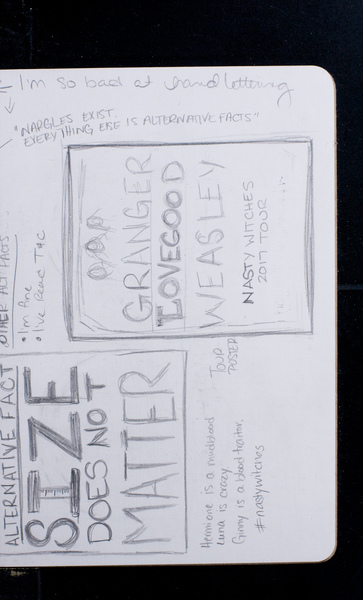 I'm so bad at hand lettering
"NARGLES EXIST.
EVERYTHING ELSE IS ALTERNATIVE FACTS"
GRANGER
LOVEGOOD
WEASLEY
NASTY WITCHES
2017 TOUR
TOUR
POSTER
OTHER ALT FACTS
• I'm fine
• I've read T+C
ALTERNATIVE FACT
SIZE
DOES NOT
MATTER
Hermione is a mudblood
Luna is crazy
Ginny is a blood traitor.
#nastywitches